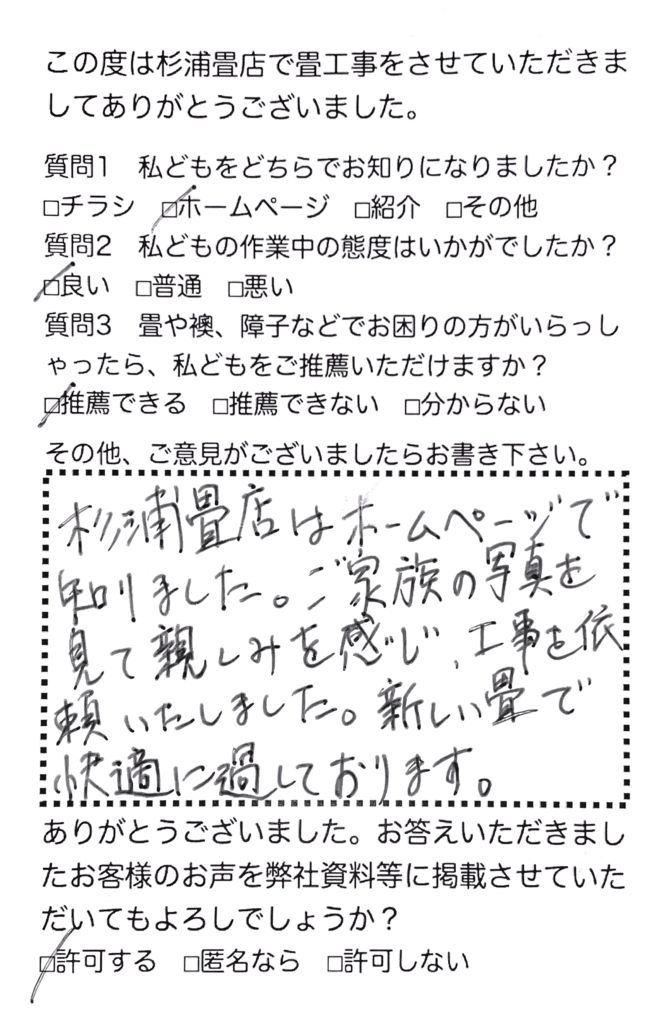 この度は杉浦畳店で畳工事をさせていただきま
してありがとうございました。
質問1　私どもをどちらでお知りになりましたか？
□チラシ　□ホームページ　□紹介　□その他
質問2　私どもの作業中の態度はいかがでしたか？
□良い　□普通　□悪い
質問3　畳や襖、障子などでお困りの方がいらっし
ゃったら、私どもをご推薦いただけますか？
□推薦できる　□推薦できない　□分からない
その他、ご意見がございましたらお書き下さい。
杉浦畳店はホームページで
知りました。ご家族の写真を
見て親しみを感じ、工事を依
頼いたしました。新しい畳で
快適に過しております。
ありがとうございました。お答えいただきまし
たお客様のお声を弊社資料等に掲載させていた
だいてもよろしでしょうか？
□許可する　□匿名なら　□許可しない